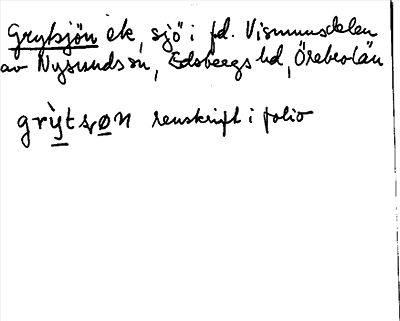 Grytsjön ek, sjö i fd. Vismumsdelen
av Nysunds sn, Edsbergs hd, Örebro län
grỳtsøn renskrift i folio